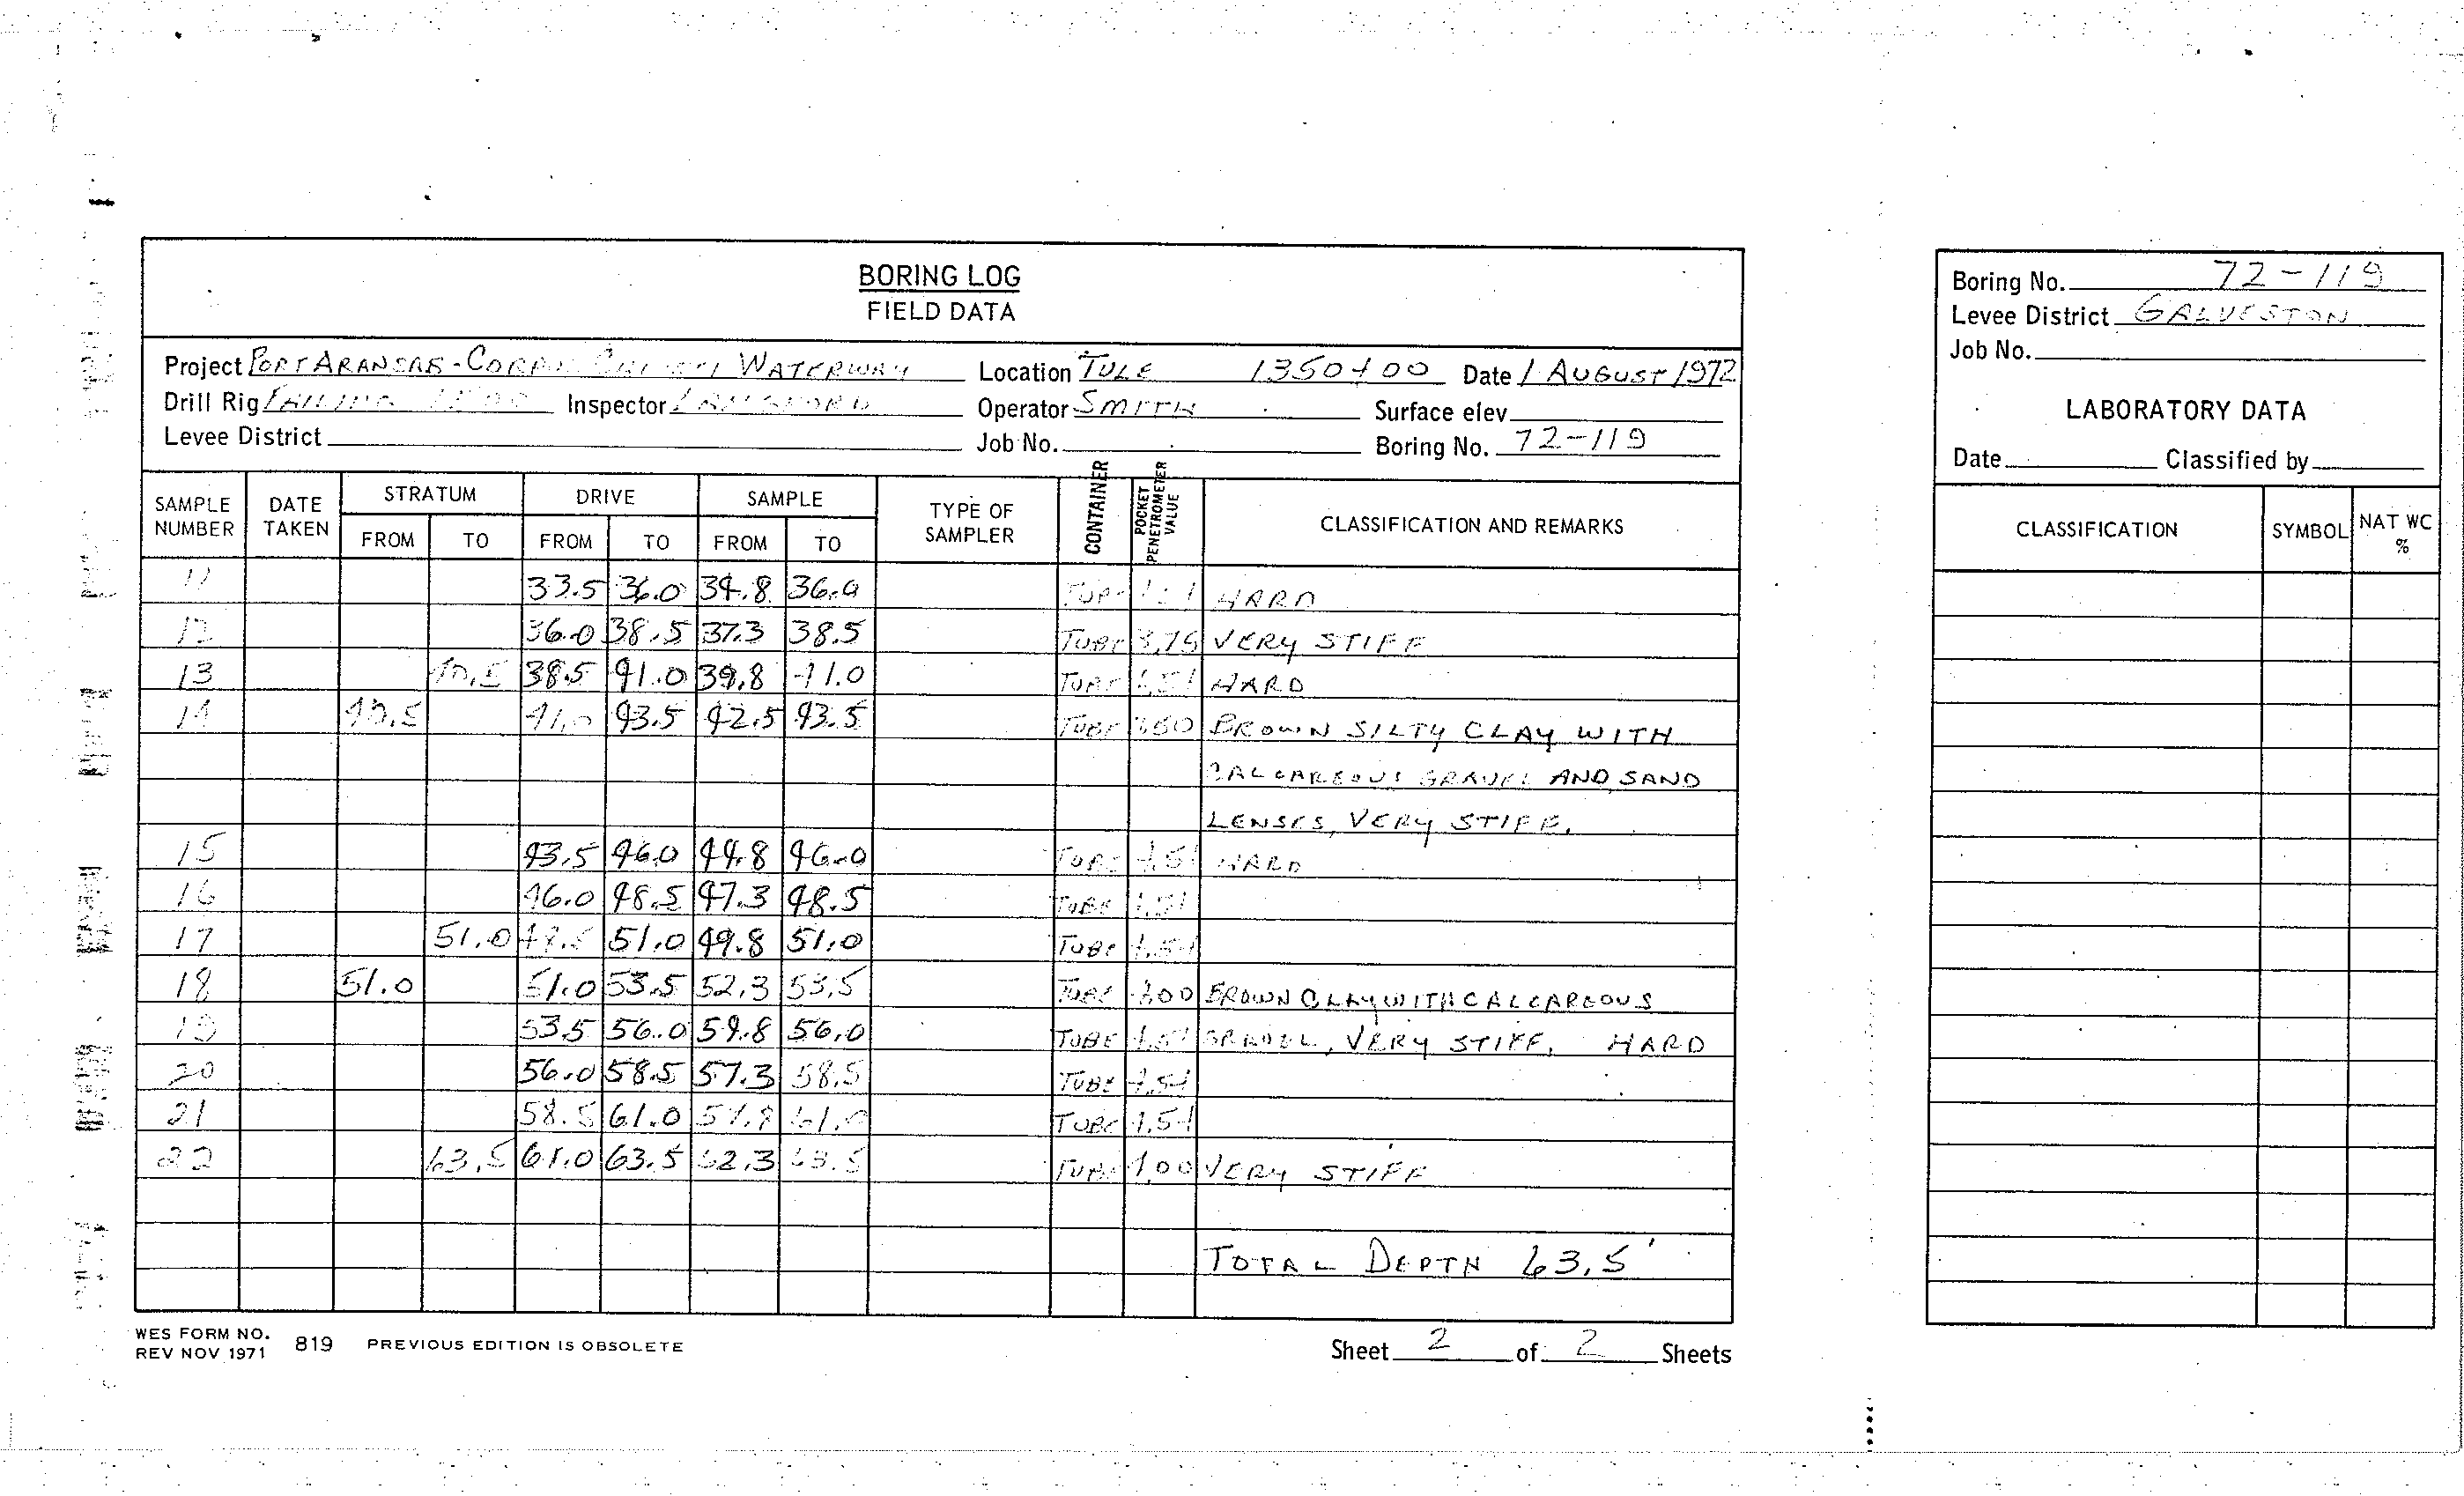 BORING LOG
FIELD DATA
Project PORT ARANSAS - CORPUS CHRISTI WATERWAY Location TULE 1350+00 Date 1 AUGUST 1972
Drill Rig FAILING Inspector LANGFORD Operator SMITH Surface elev.
Levee District Job No. Boring No. 72-119
SAMPLE NUMBER DATE TAKEN STRATUM FROM TO DRIVE FROM TO SAMPLE FROM TO TYPE OF SAMPLER CONTAINER POCKET PENETROMETER VALUE CLASSIFICATION AND REMARKS
11 33.5 36.0 34.8 36.0 TUBE HARD
12 36.0 38.5 37.3 38.5 TUBE 3.75 VERY STIFF
13 40.5 38.5 41.0 39.8 41.0 TUBE 4.5+ HARD
14 40.5 41.0 43.5 42.5 43.5 TUBE BROWN SILTY CLAY WITH
CALCAREOUS GRAVEL AND SAND
LENSES, VERY STIFF.
15 43.5 46.0 44.8 46.0 TUBE 4.5+ HARD
16 46.0 48.5 47.3 48.5 TUBE 4.5+
17 51.0 48.5 51.0 49.8 51.0 TUBE 4.5+
18 51.0 51.0 53.5 52.3 53.5 TUBE BROWN CLAY WITH CALCAREOUS
19 53.5 56.0 54.8 56.0 TUBE 4.5+ GRAVEL, VERY STIFF, HARD
20 56.0 58.5 57.3 58.5 TUBE 4.5+
21 58.5 61.0 59.8 61.0 TUBE 4.5+
22 63.5 61.0 63.5 62.3 63.5 TUBE 4.00 VERY STIFF
TOTAL DEPTH 63.5'
WES FORM NO. 819 PREVIOUS EDITION IS OBSOLETE
REV NOV 1971
Sheet 2 of 2 Sheets
Boring No. 72-119
Levee District GALVESTON
Job No.
LABORATORY DATA
Date Classified by
CLASSIFICATION SYMBOL NAT WC %